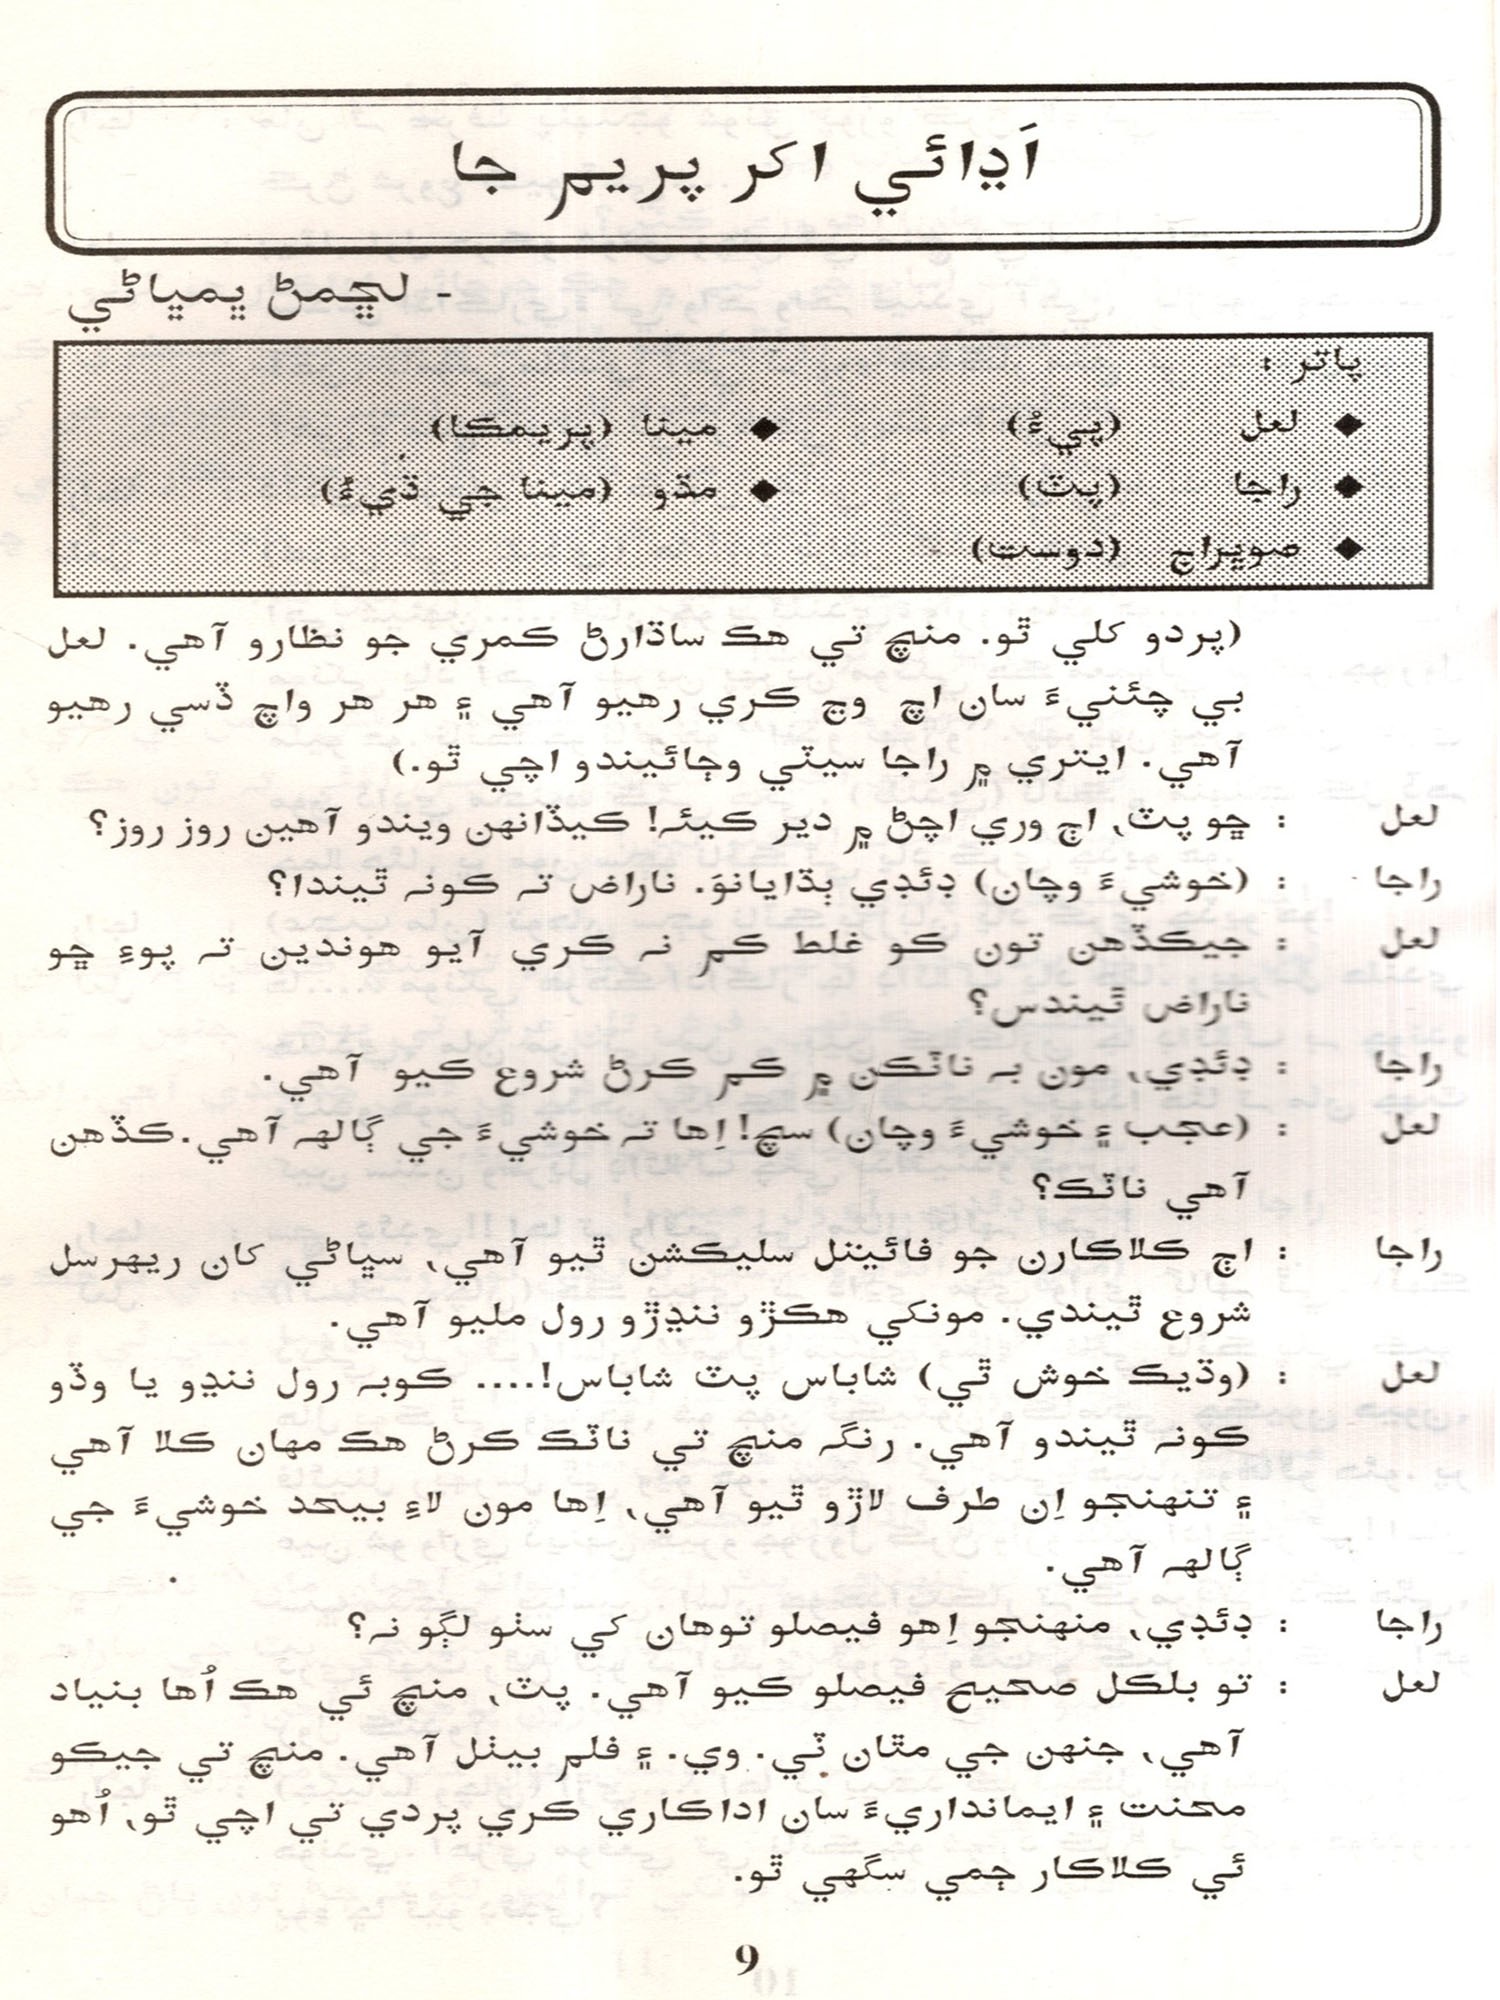 اَڍائي اکر پريم جا
- لڇمڻ ڀمڀاڻي
پاتر :
◆ لعل (پيءُ) ◆ مينا (پريمڪا)
◆ راجا (پٽ) ◆ مڌو (مينا جي ڌيءُ)
◆ صوڀراج (دوست)
(پردو کلي ٿو. منچ تي هڪ ساڌارڻ ڪمري جو نظارو آهي. لعل
بي چئنيءَ سان اچ وڃ ڪري رهيو آهي ۽ هر هر واچ ڏسي رهيو
آهي. ايتري ۾ راجا سيٽي وڄائيندو اچي ٿو.)
لعل : ڇو پٽ، اڄ وري اچڻ ۾ دير ڪيئه! ڪيڏانهن ويندو آهين روز روز؟
راجا : (خوشيءَ وچان) ڊئڊي ٻڌايانوَ. ناراض تہ ڪونہ ٿيندا؟
لعل : جيڪڏهن تون ڪو غلط ڪم نہ ڪري آيو هوندين تہ پوءِ ڇو
ناراض ٿيندس؟
راجا : ڊئڊي، مون بہ ناٽڪن ۾ ڪم ڪرڻ شروع ڪيو آهي.
لعل : (عجب ۽ خوشيءَ وچان) سچ! اِها تہ خوشيءَ جي ڳالهہ آهي. ڪڏهن
آهي ناٽڪ؟
راجا : اڄ ڪلاڪارن جو فائينل سليڪشن ٿيو آهي، سڀاڻي کان ريهرسل
شروع ٿيندي. مونکي هڪڙو ننڍڙو رول مليو آهي.
لعل : (وڌيڪ خوش ٿي) شاباس پٽ شاباس!.... ڪوبہ رول ننڍو يا وڏو
ڪونہ ٿيندو آهي. رنگہ منچ تي ناٽڪ ڪرڻ هڪ مهان ڪلا آهي
۽ تنهنجو اِن طرف لاڙو ٿيو آهي، اِها مون لاءِ بيحد خوشيءَ جي
ڳالهہ آهي.
راجا : ڊئڊي، منهنجو اِهو فيصلو توهان کي سٺو لڳو نہ؟
لعل : تو بلڪل صحيح فيصلو ڪيو آهي. پٽ، منچ ئي هڪ اُها بنياد
آهي، جنهن جي مٿان ٽي. وي. ۽ فلم بيٺل آهي. منچ تي جيڪو
محنت ۽ ايمانداريءَ سان اداڪاري ڪري پردي تي اچي ٿو، اُهو
ئي ڪلاڪار ڄمي سگهي ٿو.
9